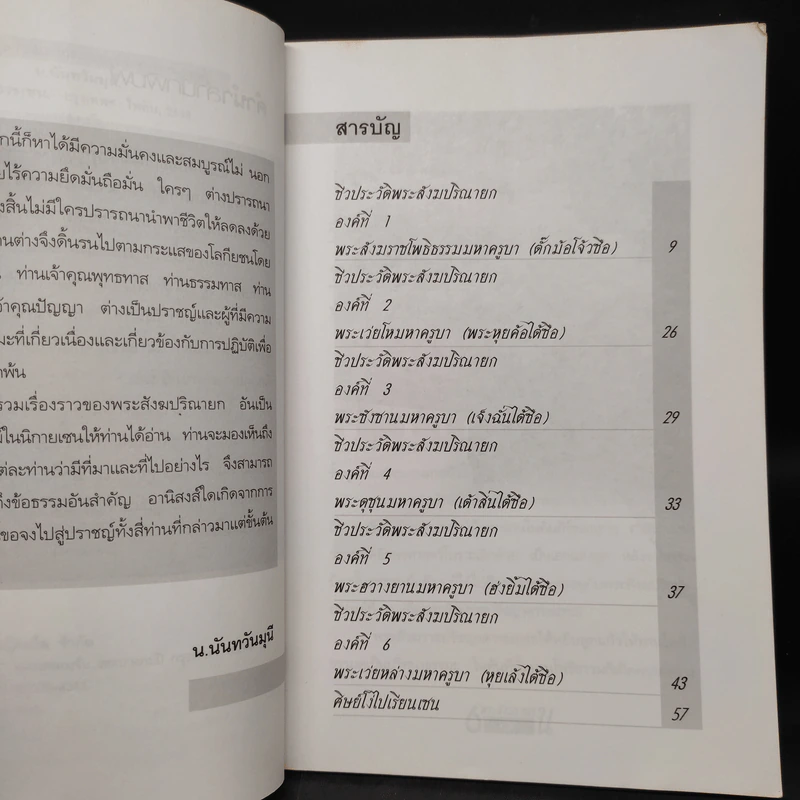 กนี้ก็หาได้มีความมั่นคงและสมบูรณ์ไม่ นอก
ยไร้ความยึดมั่นถือมั่น ใครๆ ต่างปรารถนา
งสิ้นไม่มีใครปรารถนานำพาชีวิตให้ลดลงด้วย
านต่างจึงดิ้นรนไปตามกระแสของโลกียชนโดย
น ท่านเจ้าคุณพุทธทาส ท่านธรรมทาส ท่าน
จ้าคุณปัญญา ต่างเป็นปราชญ์และผู้ที่มีความ
มะที่เกี่ยวเนื่องและเกี่ยวข้องกับการปฏิบัติเพื่อ
าพ้น
รวมเรื่องราวของพระสังฆปริณายก อันเป็น
ย์ในนิกายเซนให้ท่านได้อ่าน ท่านจะมองเห็นถึง
ต่ละท่านว่ามีที่มาและที่ไปอย่างไร จึงสามารถ
ถึงข้อธรรมอันสำคัญ อานิสงส์ใดเกิดจากการ
ขอจงไปสู่ปราชญ์ทั้งสี่ท่านที่กล่าวมาแต่ขั้นต้น
น.นันทวันมุนี
สารบัญ
ชีวประวัติพระสังฆปริณายก
องค์ที่ 1
พระสังฆราชโพธิธรรมมหาครูบา (ตั๊กม้อโจ้วซือ) 9
ชีวประวัติพระสังฆปริณายก
องค์ที่ 2
พระเว่ยโหมหาครูบา (พระหุยค้อไต้ซือ) 26
ชีวประวัติพระสังฆปริณายก
องค์ที่ 3
พระซังซานมหาครูบา (เจ็งฉั่นไต้ซือ) 29
ชีวประวัติพระสังฆปริณายก
องค์ที่ 4
พระตุซุนมหาครูบา (เต้าสิ่นไต้ซือ) 33
ชีวประวัติพระสังฆปริณายก
องค์ที่ 5
พระฮวางยานมหาครูบา (ฮ่งยิ้มไต้ซือ) 37
ชีวประวัติพระสังฆปริณายก
องค์ที่ 6
พระเว่ยหล่างมหาครูบา (หุยเล้งไต้ซือ) 43
ศิษย์โง่ไปเรียนเซน 57